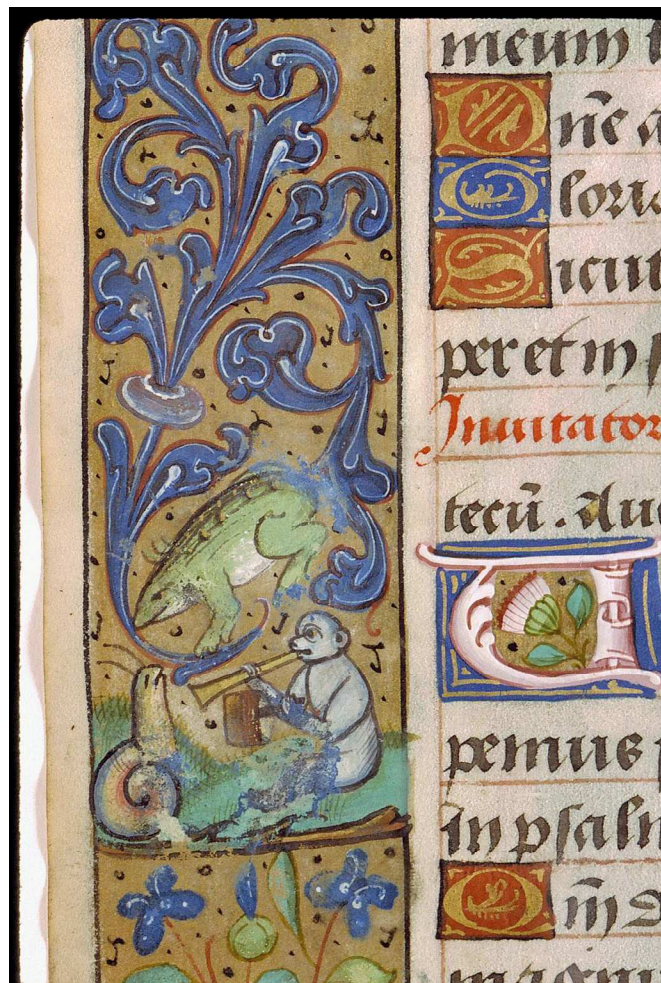 meum l
Dñe a
Gloria
Sicut
per et in s
Inuitator
tecū. Aue
pemus p
in psalm
Om̄ 
magnus